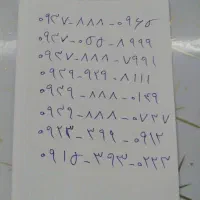 ۰۹۳۷-۸۸۸-۰۹۶۵
۰۹۳۷-۰۵۵-۸۹۹۹
۰۹۳۷-۸۸۸-۷۹۹۱
۰۹۳۹-۹۲۹-۸۱۱۱
۰۹۳۹-۸۸۸-۰۱۴۹
۰۹۳۹-۸۸۸-۰۷۳۷
۰۹۲۳-۳۹۹-۰۹۱۲
۰۹۱۵-۳۹۳-۰۲۲۳